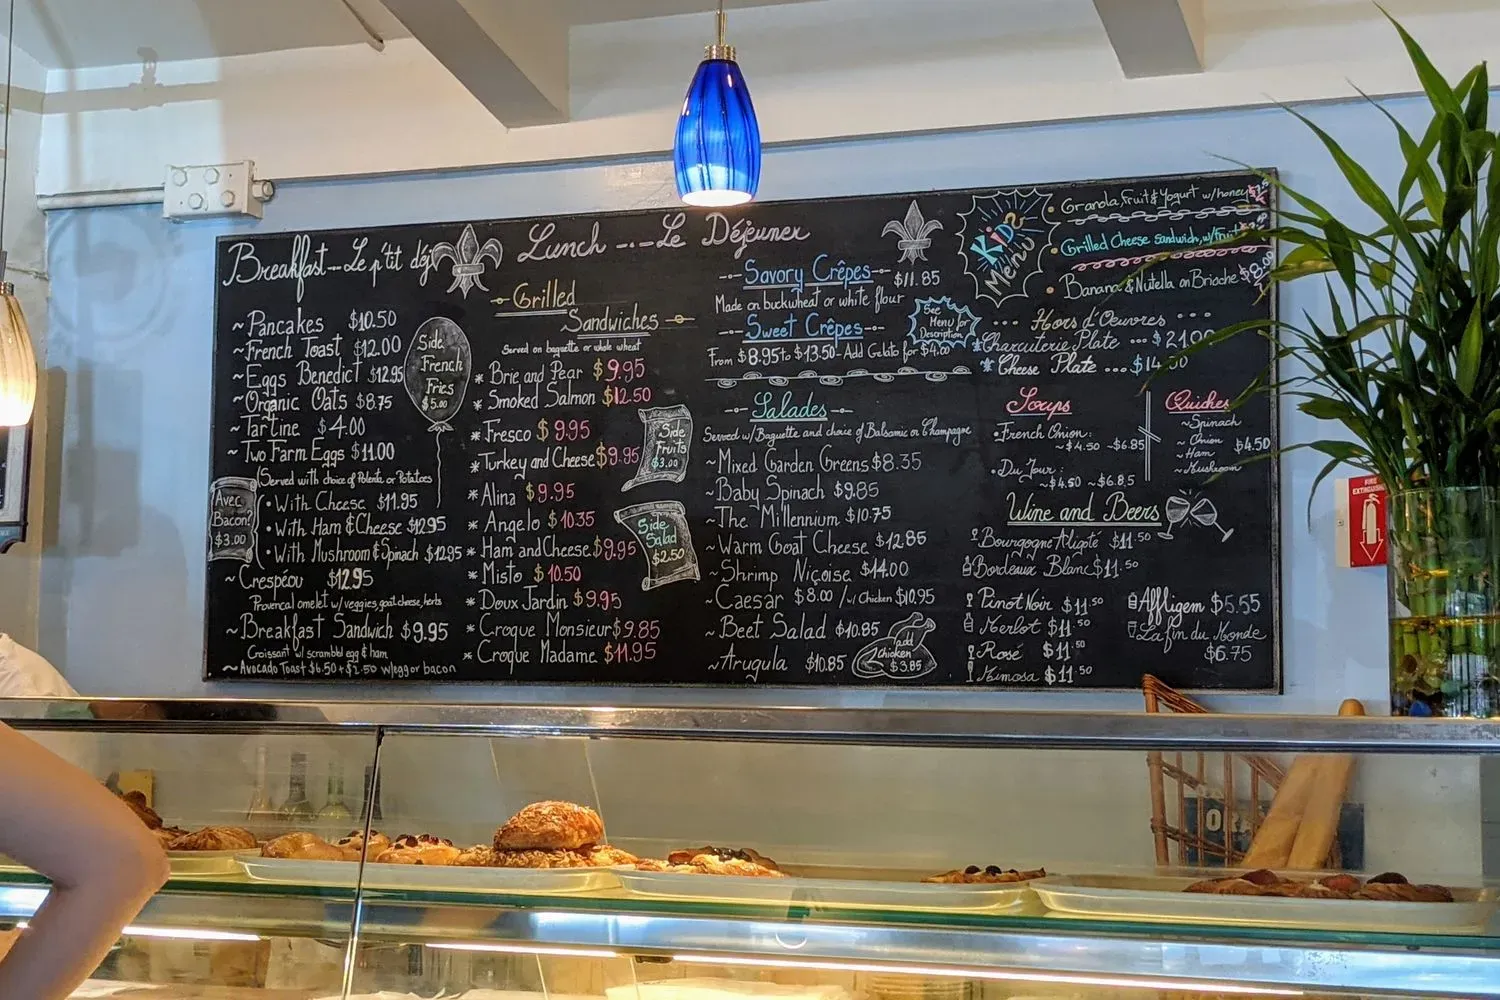 Breakfast - Le p'tit déj
~Pancakes $10.50
~French Toast $12.00
~Eggs Benedict $12.95
~Organic Oats $8.75
~Tartine $4.00
~Two Farm Eggs $11.00
Served with choice of Polenta or Potatoes
• With Cheese $11.95
• With Ham & Cheese $12.95
• With Mushroom & Spinach $12.95
~Crespéou $12.95
Provencal omelet w/veggies, goat cheese, herbs
~Breakfast Sandwich $9.95
Croissant w/ scrambld egg & ham
~Avocado Toast $6.50 + $2.50 w/egg or bacon
Avec
Bacon?
$3.00
Side
French
Fries
$5.00
Lunch - Le Déjeuner
Grilled
Sandwiches
Served on baguette or whole wheat
* Brie and Pear $9.95
* Smoked Salmon $12.50
* Fresco $9.95
* Turkey and Cheese $9.95
* Alina $9.95
* Angelo $10.35
* Ham and Cheese $9.95
* Misto $10.50
* Doux Jardin $9.95
* Croque Monsieur $9.85
* Croque Madame $11.95
Side
Fruits
$3.00
Side
Salad
$2.50
Savory Crêpes $11.85
Made on buckwheat or white flour
Sweet Crêpes
From $8.95 to $13.50 - Add Gelato for $4.00
See
Menu for
Description
Salades
Served w/Baguette and choice of Balsamic or Champagne
~Mixed Garden Greens $8.35
~Baby Spinach $9.85
~The Millennium $10.75
~Warm Goat Cheese $12.85
~Shrimp Niçoise $14.00
~Caesar $8.00 /w/ Chicken $10.95
~Beet Salad $10.85
~Arugula $10.85
add
chicken
$3.85
Kids
Menu
• Granola, Fruit & Yogurt w/honey
• Grilled Cheese Sandwich, w/fruit
• Banana & Nutella on Brioche
Hors d'Oeuvres
* Charcuterie Plate ... $21.00
* Cheese Plate ...
Soups
• French Onion:
~$4.50 ~$6.85
• Du Jour:
~$4.50 ~$6.85
Quiches
~Spinach
~Onion
~Ham
~Mushroom
$4.50
Wine and Beers
Bourgogne Aligoté $11.50
Bordeaux Blanc $11.50
Pinot Noir $11.50
Merlot $11.50
Rosé $11.50
Mimosa $11.50
Affligem $5.55
La fin du Monde
$6.75
FIRE